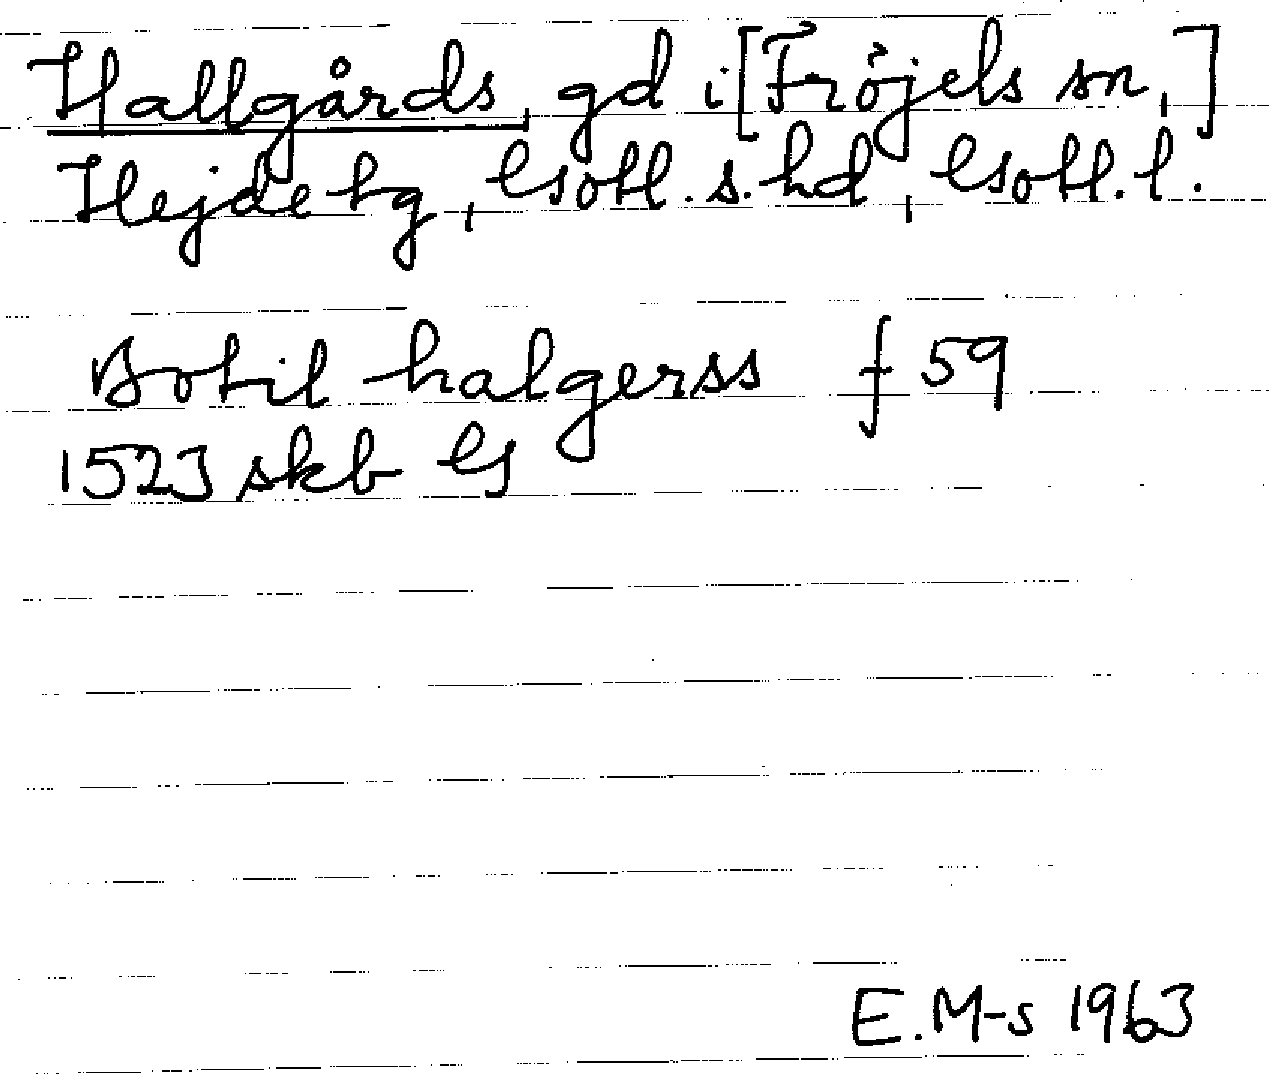 Hallgårds, gd i [Fröjels sn,]
Hejde tg, Gotl. s. hd, Gotl. l.
Botil halgerss f 59
1523 skb G
E. M-s 1963